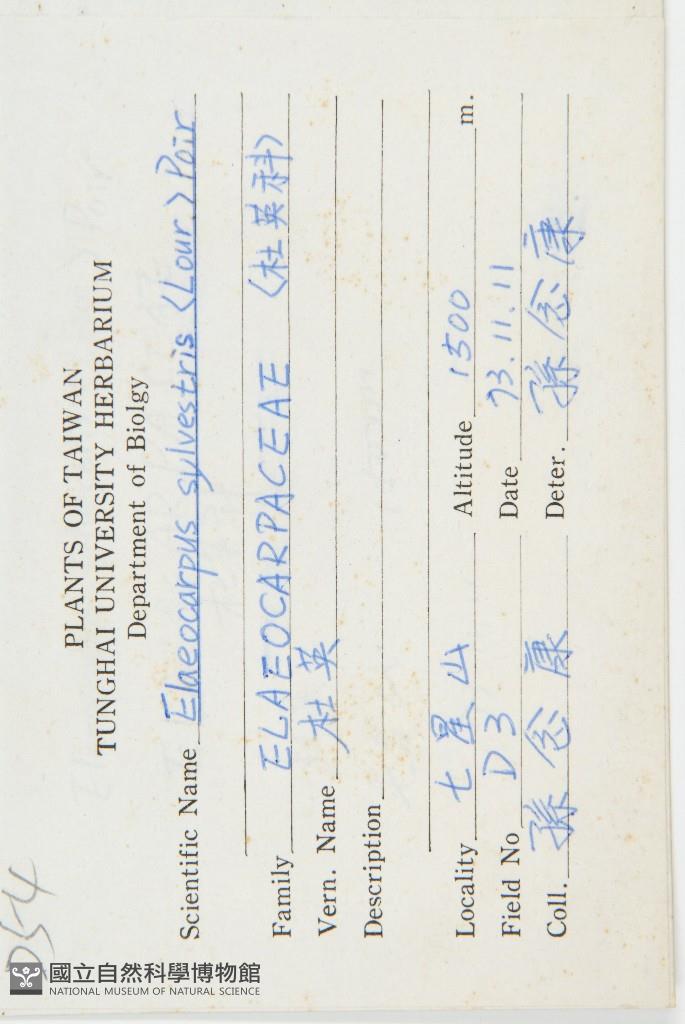 PLANTS OF TAIWAN
TUNGHAI UNIVERSITY HERBARIUM
Department of Biolgy
Scientific Name Elaeocarpus sylvestris (Lour.) Poir
Family ELAEOCARPACEAE (杜英科)
Vern. Name 杜英
Description
Locality 七星山 Altitude 1500 m.
Field No D3 Date 73.11.11
Coll. 孫念康 Deter. 孫念康
D54
國立自然科學博物館
NATIONAL MUSEUM OF NATURAL SCIENCE